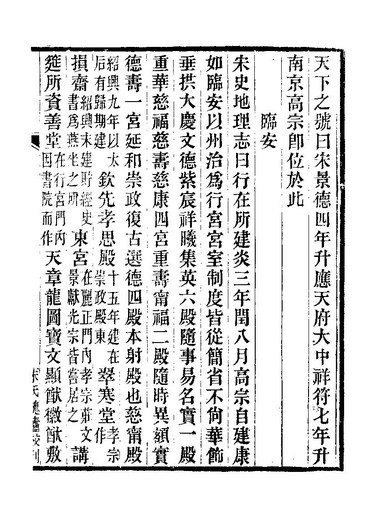 天下之號曰宋景德四年升應天府大中祥符七年升
南京高宗卽位於此
臨安
宋史地理志曰行在所建炎三年閏八月高宗自建康
如臨安以州治為行宮宮室制度皆從簡省不尙華飾
垂拱大慶文德紫宸祥曦集英六殿隨事易名實一殿
重華慈福慈壽慈康四宮重壽甯福二殿隨時異額實
德壽一宮延和崇政復古選德四殿本射殿也慈甯殿
紹興九年以太
后有歸期建
欽先孝思殿
十五年建在
崇政殿東
翠寒堂
孝宗
作
損齋
紹興末建貯經史
書為燕坐之所
東宮
在麗正門內孝宗莊文
景獻光宗皆嘗居之
講
筵所資善堂
在行宮門內
因書院而作
天章龍圖寶文顯猷徽猷敷